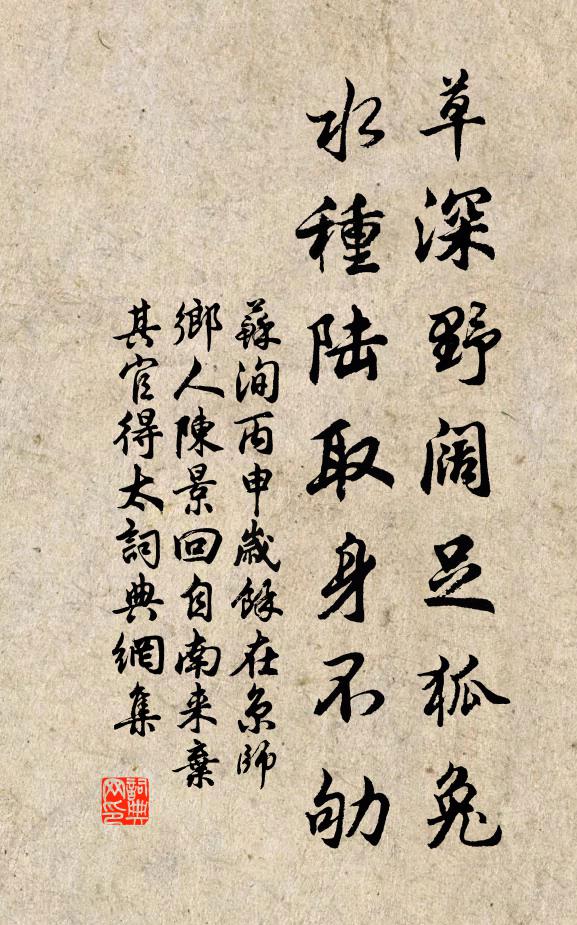 草深野阔足狐兔
水種陆取身不劬
蘇洵丙申歲餘在京師
鄉人陳景回自南来棄
其官得太詞典網集
詞典
网印